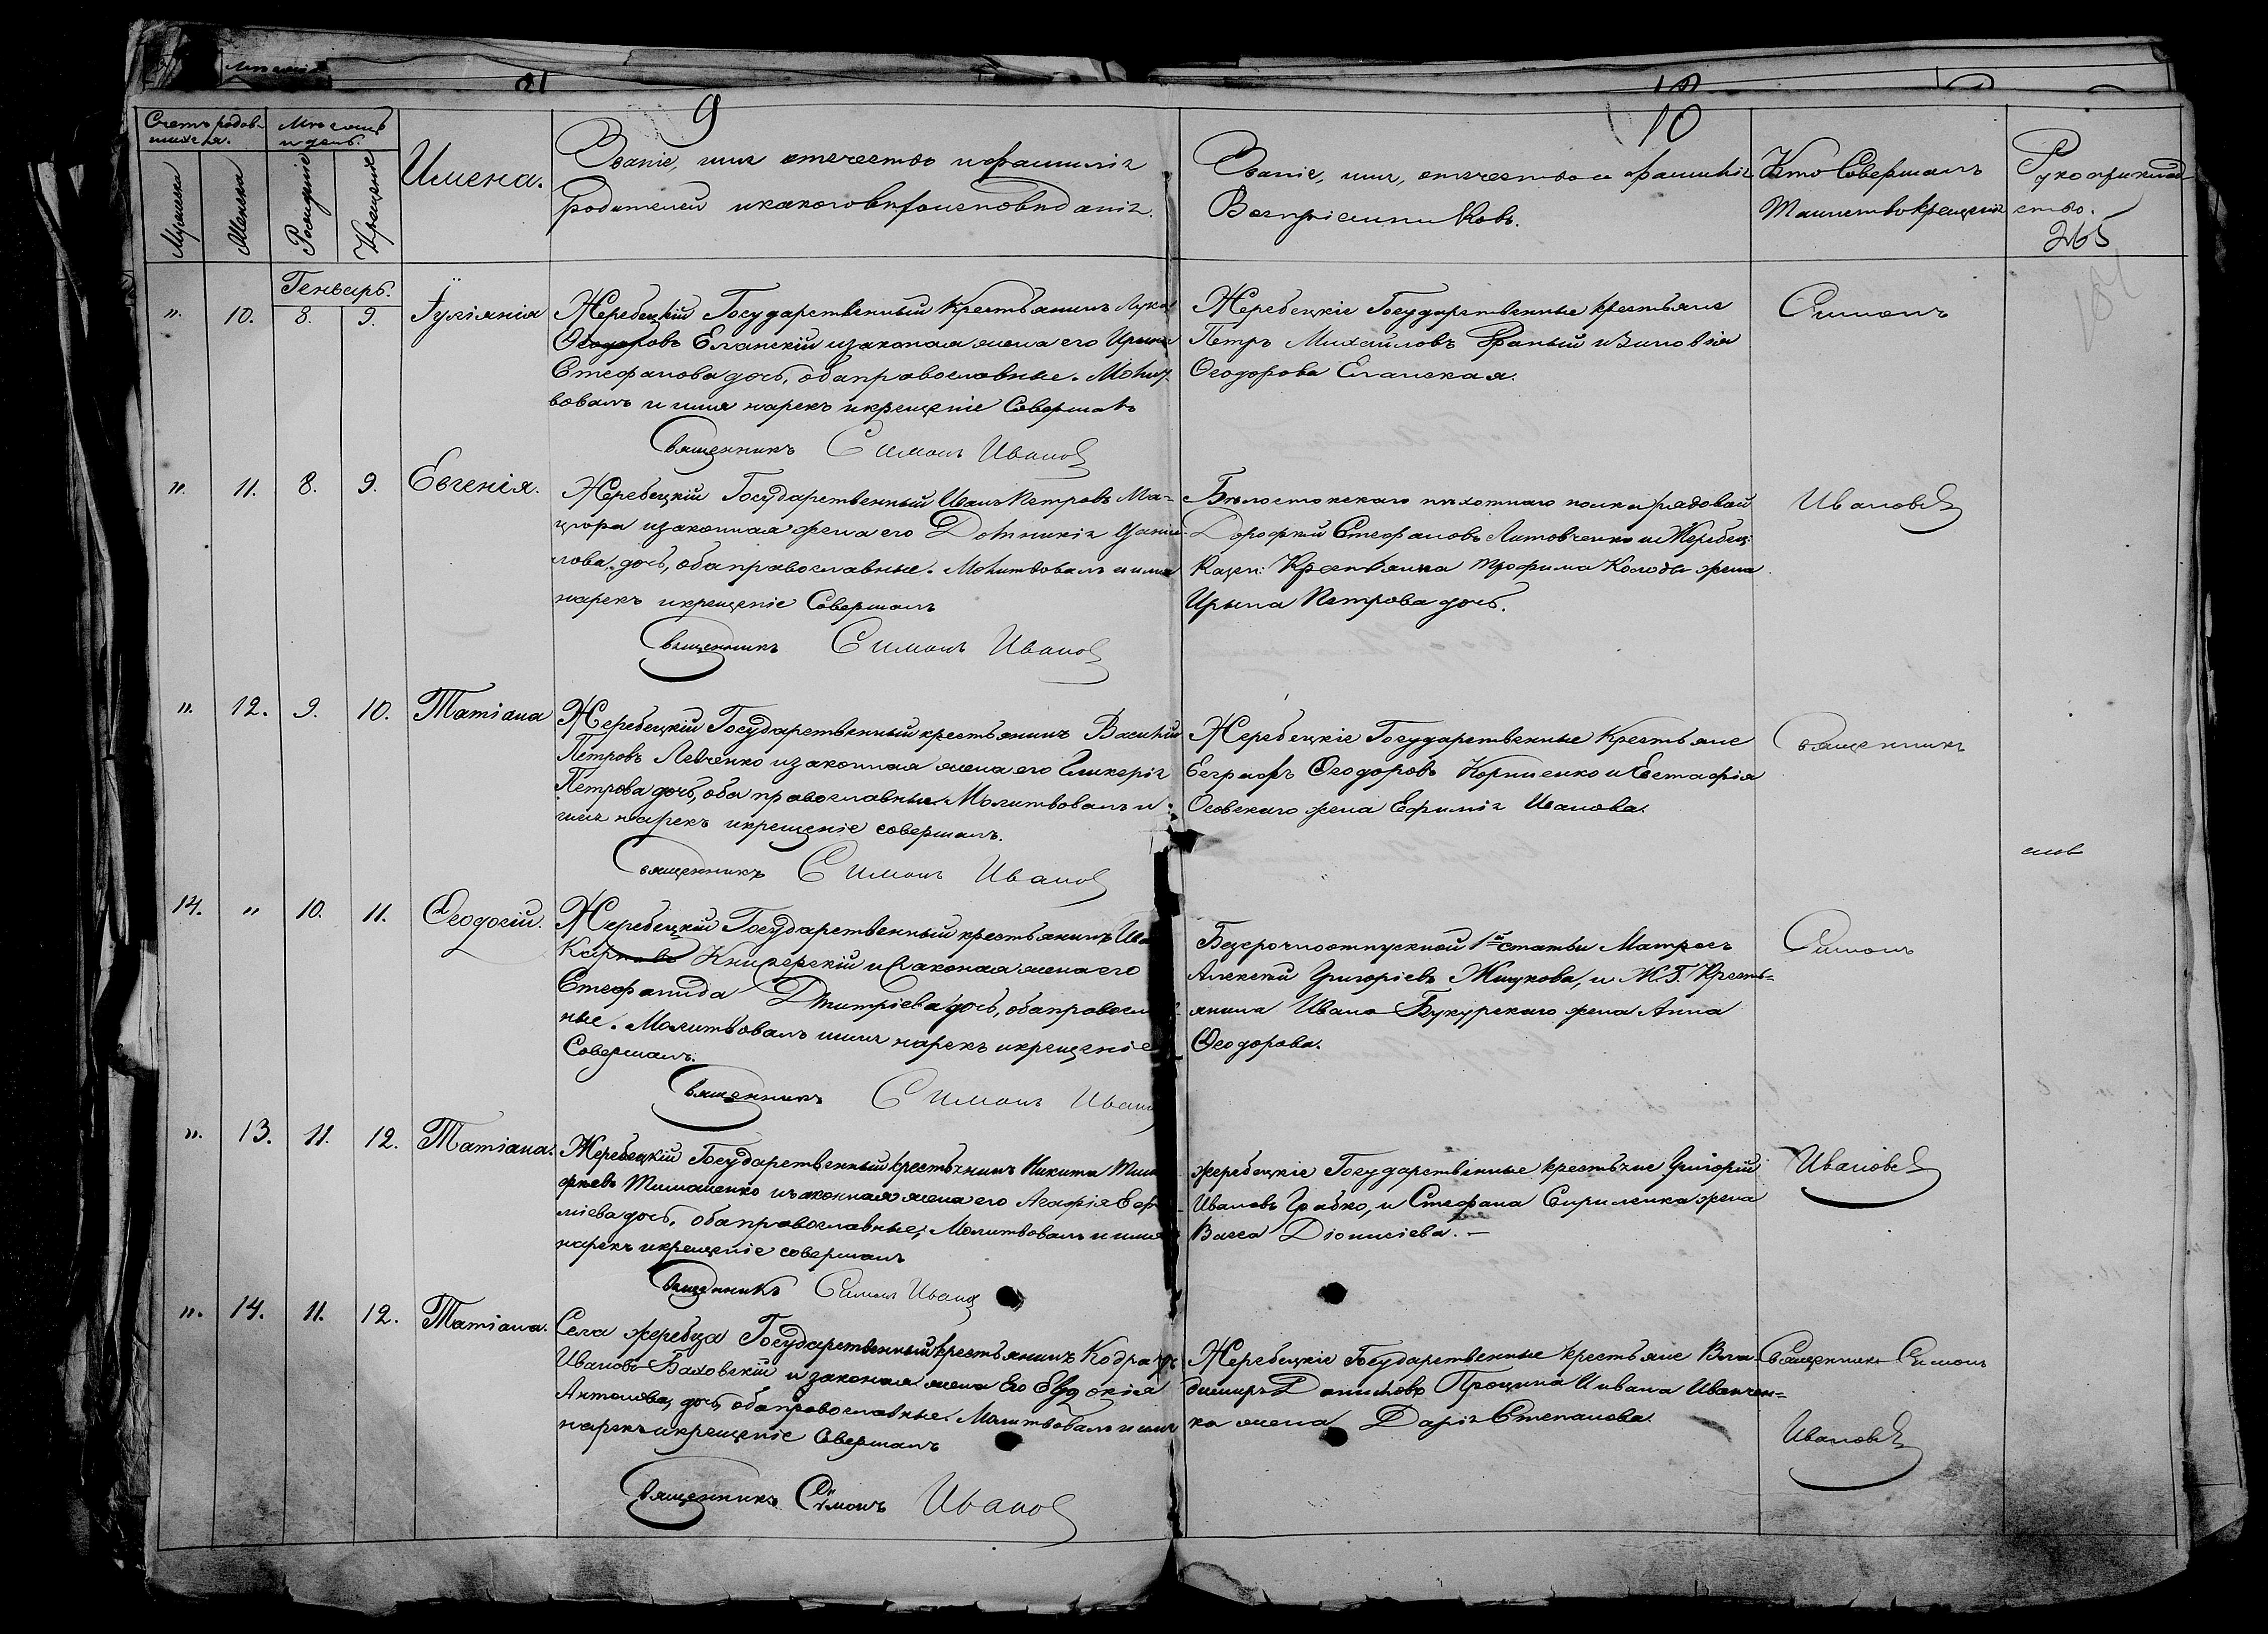 9
10
Счетъ родив-
шихся.
Мѣсяцъ
и день.
Мужеска
Женска
Рожденіе
Крещеніе
Имена.
Званіе, имя отчество и фамилія
родителей и какого вѣроисповѣданія.
Званіе, имя, отчество и фамилія
Воспріемниковъ.
Кто Совершалъ
Таинство крещенія
Рукоприклад-
ство.
265
Генварь.
". 10. 8. 9. Іуліянія
Жеребецкій Государственный Крестьянинъ Лука
Ѳеодоровъ Еланскій и законная жена его Ирина
Стефанова дочь, оба православные. Молит-
вовалъ и имя нарекъ и крещеніе Совершалъ
Священникъ Симонъ Иванов
Жеребецкіе Государственные крестьяне
Петръ Михайловъ и Зиновія
Ѳеодорова Еланская.
Симонъ
". 11. 8. 9. Евгенія.
Жеребецкій Государственный Иванъ Петровъ Ма-
цюра и законная жена его Домникія
лова, дочь, оба православные. Молитвовалъ и имя
нарекъ и крещеніе Совершалъ
Священникъ Симонъ Иванов
Бѣлостокскаго пѣхотнаго полка рядовой
Дорофѣй Стефановъ Литовченко и Жеребец-
Казен: Крестьянина Трофима Колоды жена
Ирына Петрова дочь.
Ивановъ
". 12. 9. 10. Татіана
Жеребецкій Государственный крестьянинъ Василій
Петровъ Левченко и законная жена его Гликерія
Петрова дочь, оба православные. Молитвовалъ и
имя нарекъ и крещеніе совершалъ.
Священникъ Симонъ Иванов
Жеребецкіе Государственные Крестьяне
Евграфъ Ѳеодоровъ Корниенко и Евстафія
Осовскаго жена Ефимія Иванова.
Священникъ
14. " 10. 11. Ѳеодосій.
Жеребецкій Государственный крестьянинъ Ива
Карповъ и законная жена его
Стефанида Дмитріева дочь, оба правосл
ные. Молитвовалъ имя нарекъ и крещеніе
Совершалъ.
Священникъ Симонъ Ивано
Безсрочноотпускной 1й статьи Матросъ
Алексѣй Григоріевъ Жидкова, и Ж. Г. Кресть-
янина Ивана Букурскаго жена Анна
Ѳеодорова.
Симонъ
". 13. 11. 12. Татіана.
Жеребецкій Государственный крестьянинъ Никита Тимо
фѣевъ Тимошенко и законная жена его Агафія Ефи
міева дочь, оба православные, Молитвовалъ и имя
нарекъ и крещеніе совершалъ
Священникъ Симонъ Иванов
жеребецкіе Государственные крестьяне Григорій
Ивановъ Грабко, и Стефана Кириленка жена
Васса Діонисіева. —
Ивановъ
". 14. 11. 12. Татіана.
Села жеребца Государственный крестьянинъ Кодратъ
Ивановъ Баховскій и законная жена Его Евдокія
Антонова, дочь, оба православные. Молитвовалъ и имя
нарекъ и крещеніе Совершалъ
Священникъ Симонъ Иванов
Жеребецкіе Государственные крестьяне Вла-
димиръ Даниловъ Процина и Ивана Иванчен-
ка жена Дарія Степанова.
Священникъ Симонъ
Ивановъ